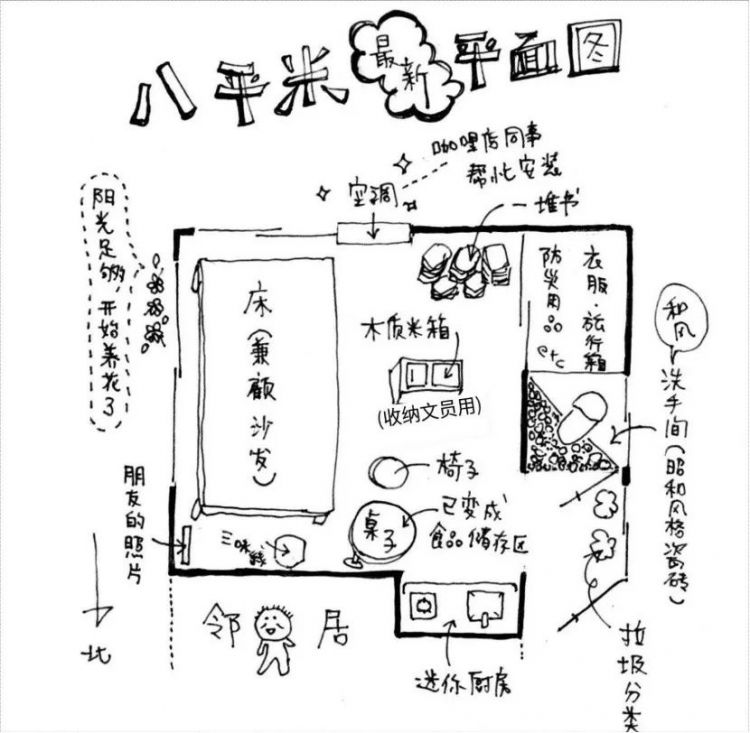 八平米最新平面图
咖哩店同事
帮忙安装
空调
堆书
阳光足够 开始养花了
床(兼顾沙发)
木质米箱
(收纳文员用)
衣服·旅行箱
防災用品
etc
和风
洗手间(昭和风格瓷砖)
椅子
桌子
已变成
食品储存区
三味线
朋友的照片
北
邻居
迷你厨房
垃圾分类